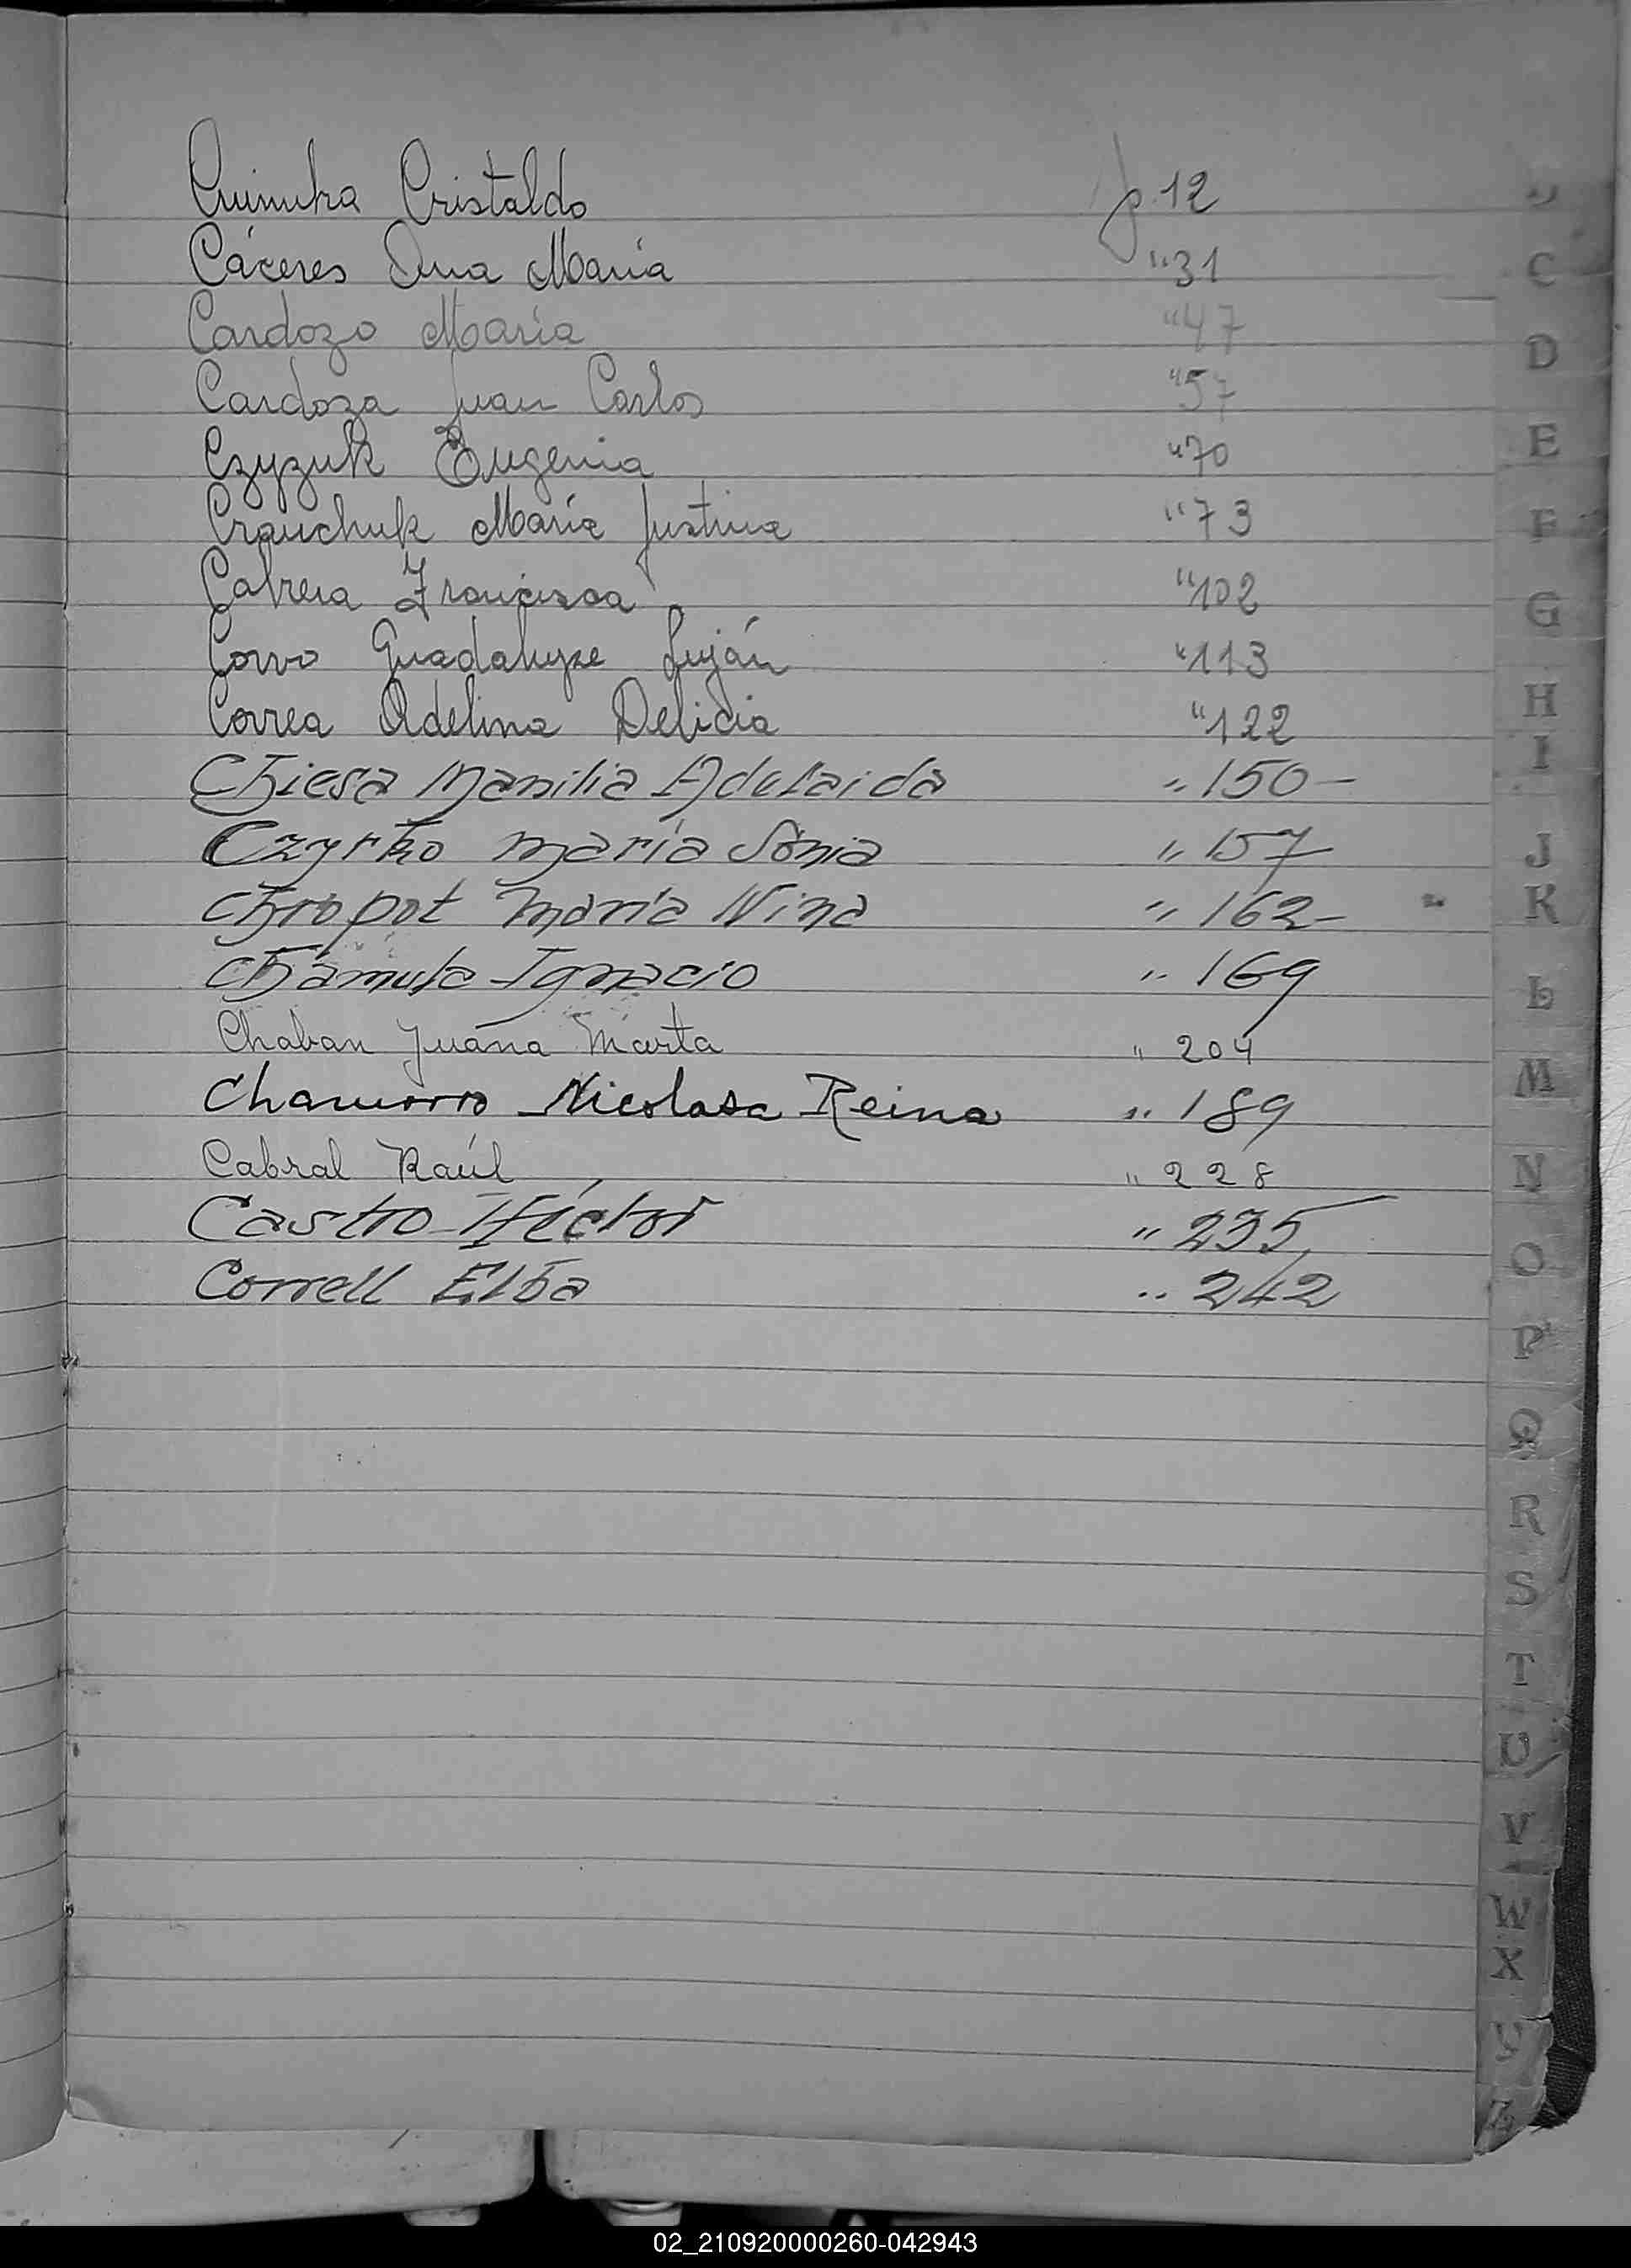 Cristaldo f. 12
Cáceres Ana María " 31
Cardozo María " 47
Cardoza Juan Carlos " 57
Czyzuk Eugenia " 70
Crauchuk María Justina " 73
Cabrera Francisca " 102
Corvo Guadalupe Luján " 113
Correa Adelina Delicia " 122
Chiesa Manilia Adelaida " 150-
Czyrko María Sonia " 157
Chropot María Nina " 162-
Ignacio " 169
Chaban Juana Marta " 204
Chamorro Nicolasa Reina " 189
Cabral Raúl " 228
Castro Héctor " 235
Correll Elba " 242
C
D
E
F
G
H
I
J
K
L
M
N
O
P
Q
R
S
T
U
V
W
X
Y
Z
02_210920000260-042943